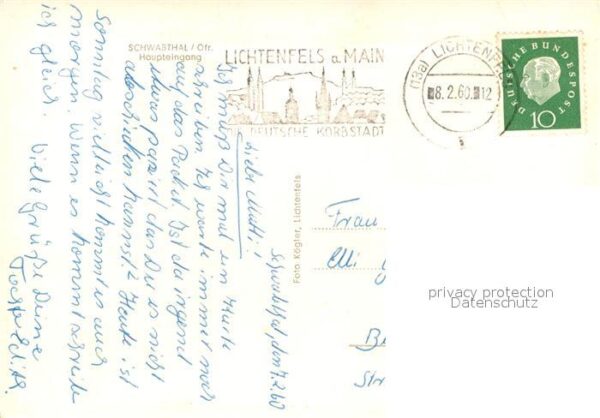 SCHWABTHAL / Ofr.
Haupteingang
LICHTENFELS a MAIN
DIE DEUTSCHE KORBSTADT
(13a) LICHTENFELS
8.2.60 12
DEUTSCHE BUNDESPOST
10
Foto Kögler, Lichtenfels
Schwabthal, den 7.2.60
Liebe Mutti!
Ich muß Dir mal ein Karte
schreiben. Ich warte immer noch
auf das Packet. Ist da irgend
etwas passirt das Du es nicht
abschicken kannst? Heute ist
Sonntag vielleicht kommt es auch
morgen. Wenn es kommt schreibe
ich gleich. Viele Grüße Deine
Tochter Edith.
Frau
Elli
Str
privacy protection